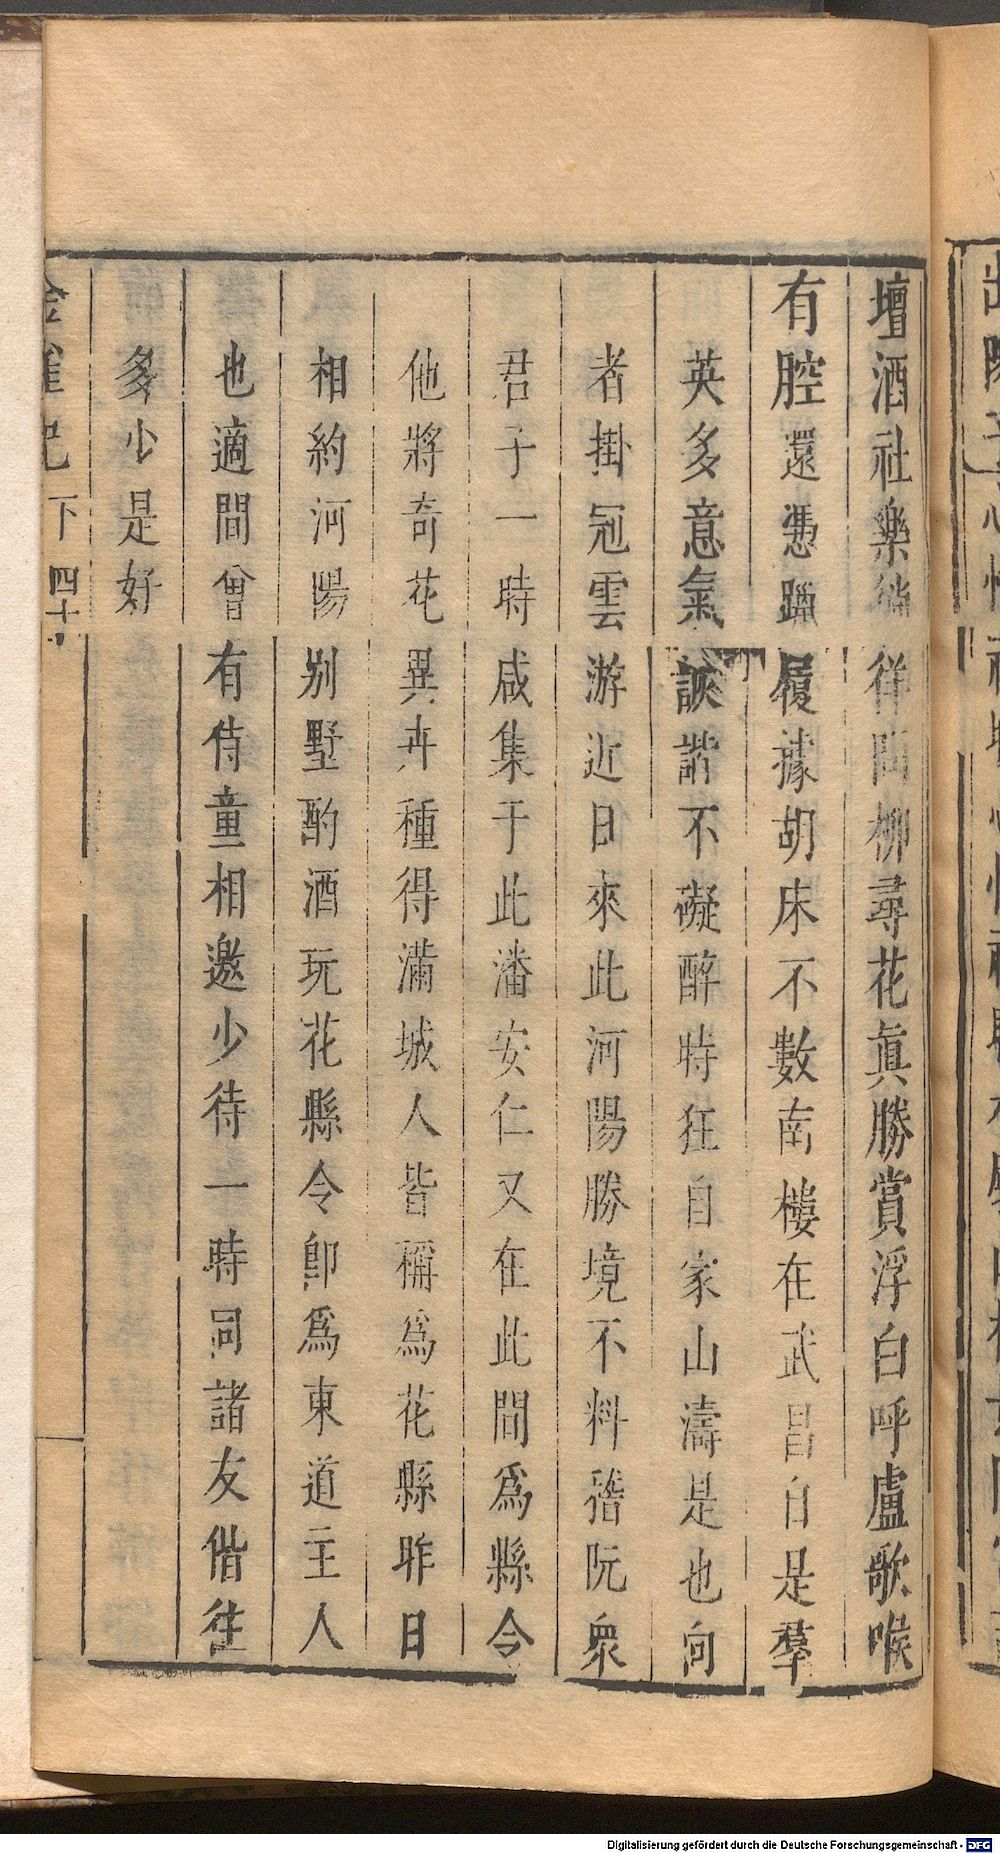 壇酒社樂徜徉問柳尋花眞勝賞浮白呼盧歌喉
有腔還憑躧履據胡床不數南樓在武昌自是羣
英多意氣詼諧不礙醉時狂自家山濤是也向
者掛冠雲游近日來此河陽勝境不料嵇阮衆
君子一時咸集于此潘安仁又在此間爲縣令
他將奇花異卉種得滿城人皆稱爲花縣昨日
相約河陽別墅酌酒玩花縣令卽爲東道主人
也適間曾有侍童相邀少待一時同諸友偕徃
多少是好
金雀記 下 四十
Digitalisierung gefördert durch die Deutsche Forschungsgemeinschaft - DFG